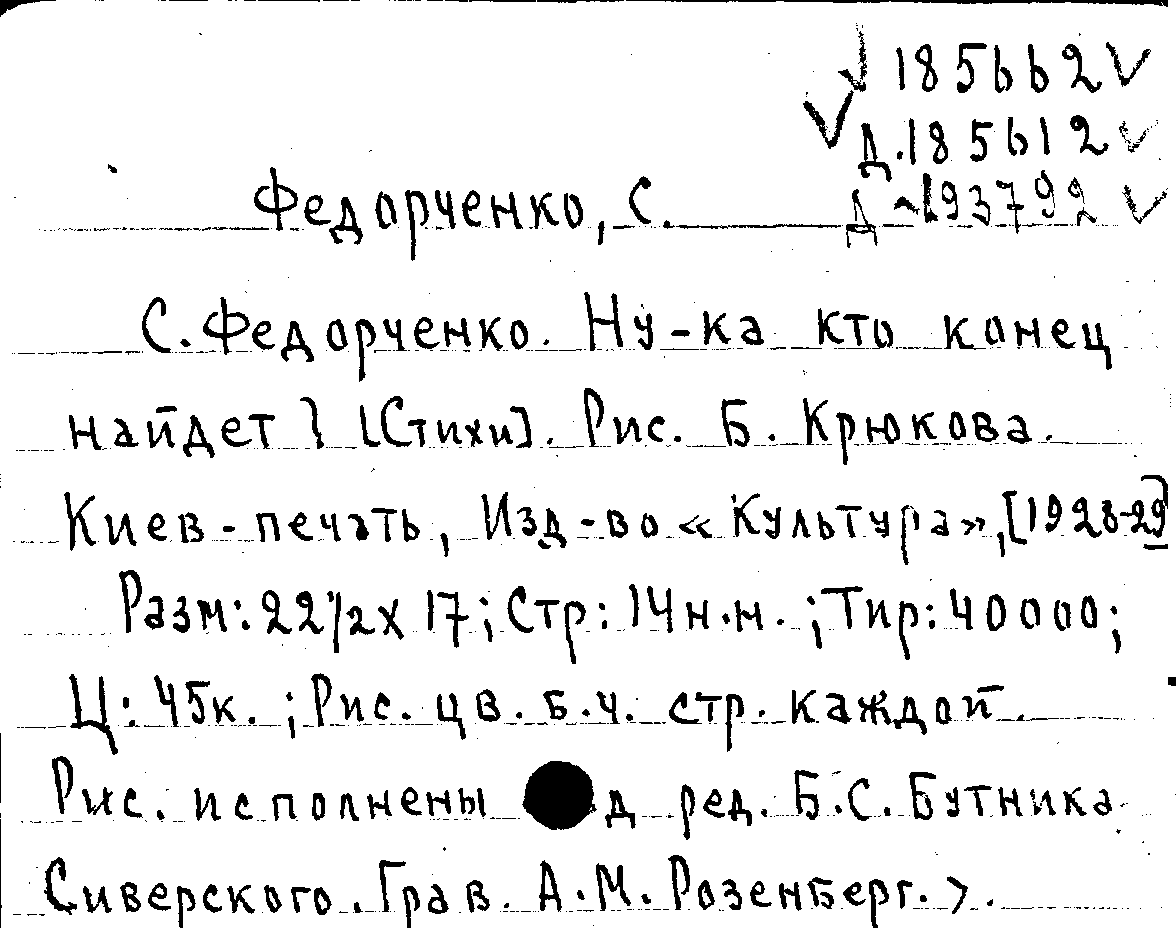 √ 185662 ✓
✓ Д. 185612 ✓
Федорченко, С. Д - 193792 ✓
С. Федорченко. Ну-ка кто конец
найдет} [Стихи]. Рис. Б. Крюкова.
Киев-печать, Изд-во «Культура», [1928-29]
Разм: 22½ х 17; Стр: 14 н.н.; Тир: 40000;
Ц: 45к.; Рис. цв. б.ч. стр. каждой.
Рис. исполнены д ред. Б.С. Бутника
Сиверского. Грав. А.М. Розенберг.>.